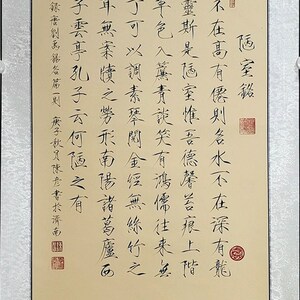 陋室銘
不在高有僊則名水不在深有龍
靈斯是陋室惟吾德馨苔痕上階
草色入簾青談笑有鴻儒往來無
丁可以調素琴閱金經無絲竹之
耳無案牘之勞形南陽諸葛廬西
子雲亭孔子云何陋之有
錄唐劉禹錫 一則 庚子秋月陳 書於濟南